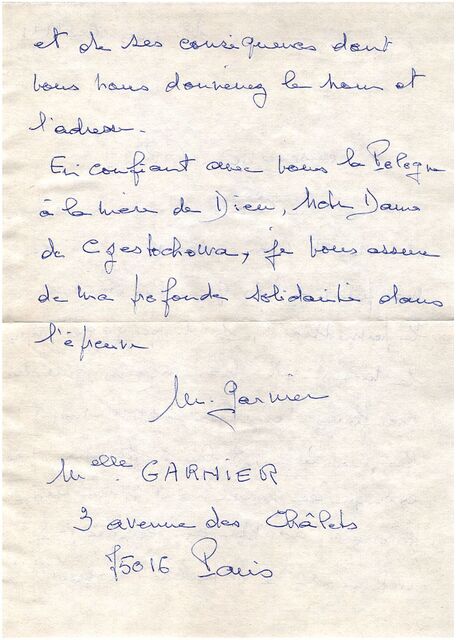 et de ses conséquences dont
vous nous donnerez le nom et
l'adresse.
En confiant avec vous la Pologne
à la mère de Dieu, Notre Dame
de Czestochowa, je vous assure
de ma profonde solidarité dans
l'épreuve
M. Garnier
Melle. GARNIER
3 avenue des Châlets
75016 Paris